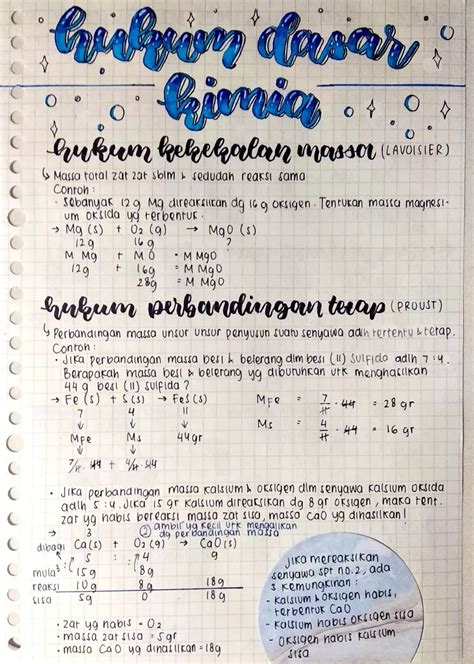 hukum dasar
kimia
hukum kekekalan massa (LAVOISIER)
↳ Massa total zat zat sblm & sedudah reaksi sama
Contoh :
· Sebanyak 12 g Mg direaksikan dg 16 g oksigen. Tentukan massa magnesi-
um oksida yg terbentuk.
→ Mg (s) + O2 (g) → MgO (s)
12 g 16 g ?
M Mg + M O = M MgO
12g + 16g = M MgO
28g = M MgO
hukum perbandingan tetap (PROUST)
↳ Perbandingan massa unsur unsur penyusun suatu senyawa adlh tertentu & tetap.
Contoh :
· Jika perbandingan massa besi & belerang dlm besi (II) sulfida adlh 7 : 4.
Berapakah massa besi & belerang yg dibutuhkan utk menghasilkan
44 g besi (II) sulfida ?
→ Fe (s) + S (s) → FeS (s) MFe = 7/11 . 44 = 28 gr
7 4 11
↓ ↓ ↓ Ms = 4/11 . 44 = 16 gr
MFe Ms 44 gr
↓ ↓
7/11 . 44 + 4/11 . 44
· Jika perbandingan massa kalsium & oksigen dlm senyawa kalsium oksida
adlh 5 : 4. Jika 15 gr kalsium direaksikan dg 8 gr oksigen, maka tent.
zat yg habis bereaksi massa zat sisa, masso CaO yg dihasilkan !
→ 3 ② ambil yg kecil utk mengalikan
dg perbandingan massa
dibagi Ca (s) + O2 (g) → CaO (s)
5 : 4 9
mula² 15 g 8 g
reaksi 10 g 8 g 18 g
sisa 5g 0 18g
· zat yg habis = O2
· massa zat sisa = 5 gr
· massa CaO yg dihasilkan = 18g
Jika mereaksikan
senyawa spt no. 2, ada
3 kemungkinan :
- kalsium & oksigen habis,
terbentuk CaO
- kalsium habis oksigen sisa
- oksigen habis kalsium
sisa